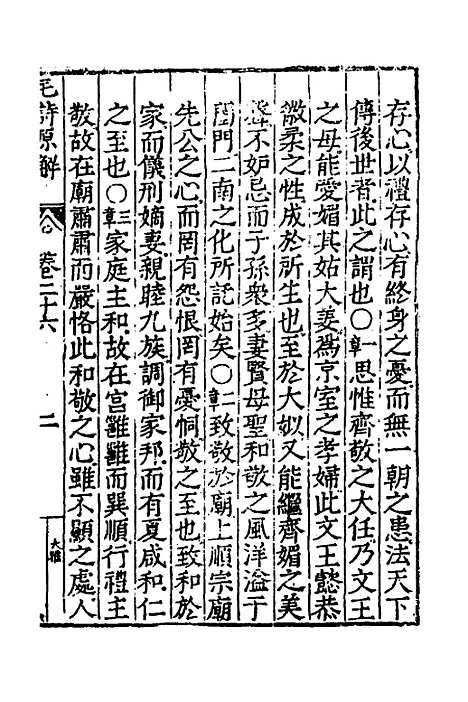 存心以禮存心有終身之憂而無一朝之患法天下
傳後世者此之謂也○一章思惟齊敬之大任乃文王
之母能愛媚其姑大姜爲京室之孝婦此文王懿恭
微柔之性成於所生也至於大姒又能繼齊媚之美
不妒忌而子孫衆多妻賢母聖和敬之風洋溢于
閨門二南之化所託始矣○二章致敬於廟上順宗廟
先公之心而罔有怨恨罔有憂恫敬之至也致和於
家而儀刑嫡妻親睦九族調御家邦而有夏咸和仁
之至也○三章家庭主和故在宮雝雝而巽順行禮主
敬故在廟肅肅而嚴恪此和敬之心雖不顯之處人
毛詩原解 卷二十六 二
大雅